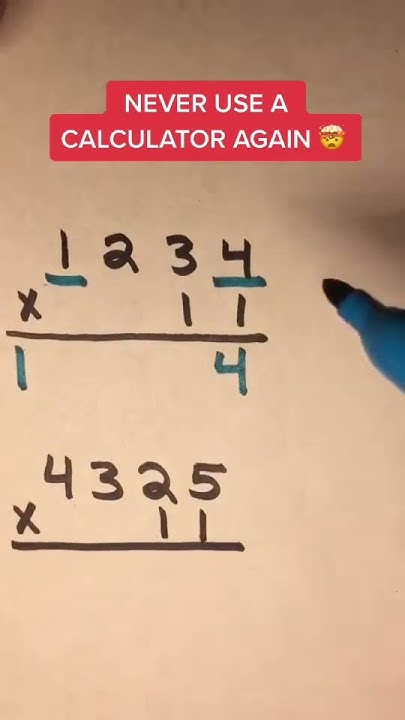 NEVER USE A
CALCULATOR AGAIN 🤯
1 2 3 4
x 1 1
1 4
4 3 2 5
x 1 1